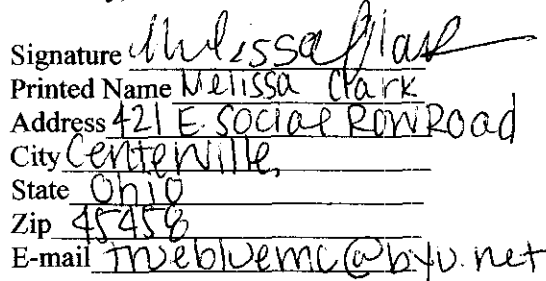 Signature Melissa Clark
Printed Name Melissa Clark
Address 421 E. Social Row Road
City Centerville,
State Ohio
Zip 45458
E-mail truebluemc@byu.net